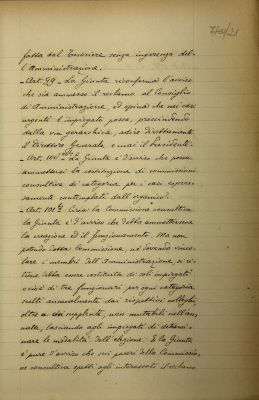 fatta dal Tesoriere senza ingerenza del-
l'Amministrazione.
- Art. 99 - La Giunta riconferma l'avviso
che sia ammesso il reclamo al Consiglio
di Amministrazione, ed opina che nei casi
urgenti l'impiegato possa, prescindendo
dalla via gerarchica, adire direttamente
il Direttore Generale e mai il Presidente.
- Art. 100 - La Giunta è d'avviso che possa
ammettersi la costituzione di commissioni
consultive di categoria per i casi espres-
samente contemplati dall'organico.
- Art. 101 - Circa la Commissione consultiva
la Giunta è d'avviso che debba ammettersene
la creazione ed il funzionamento. Ma non
potendo detta Commissione, nè dovendo vinco-
lare i membri dell'Amministrazione, si ri-
tiene debba essere costituita di soli impiegati
e cioè di tre funzionari per ogni categoria
scelti annualmente dai rispettivi colleghi,
oltre a supplente, non mutabili nell'an-
nata, lasciando agli impiegati di determi-
nare le modalità dell'elezione. E la Giunta
è pure d'avviso che sui pareri della Commissio-
ne consultiva spetti agli interessati il reclamo